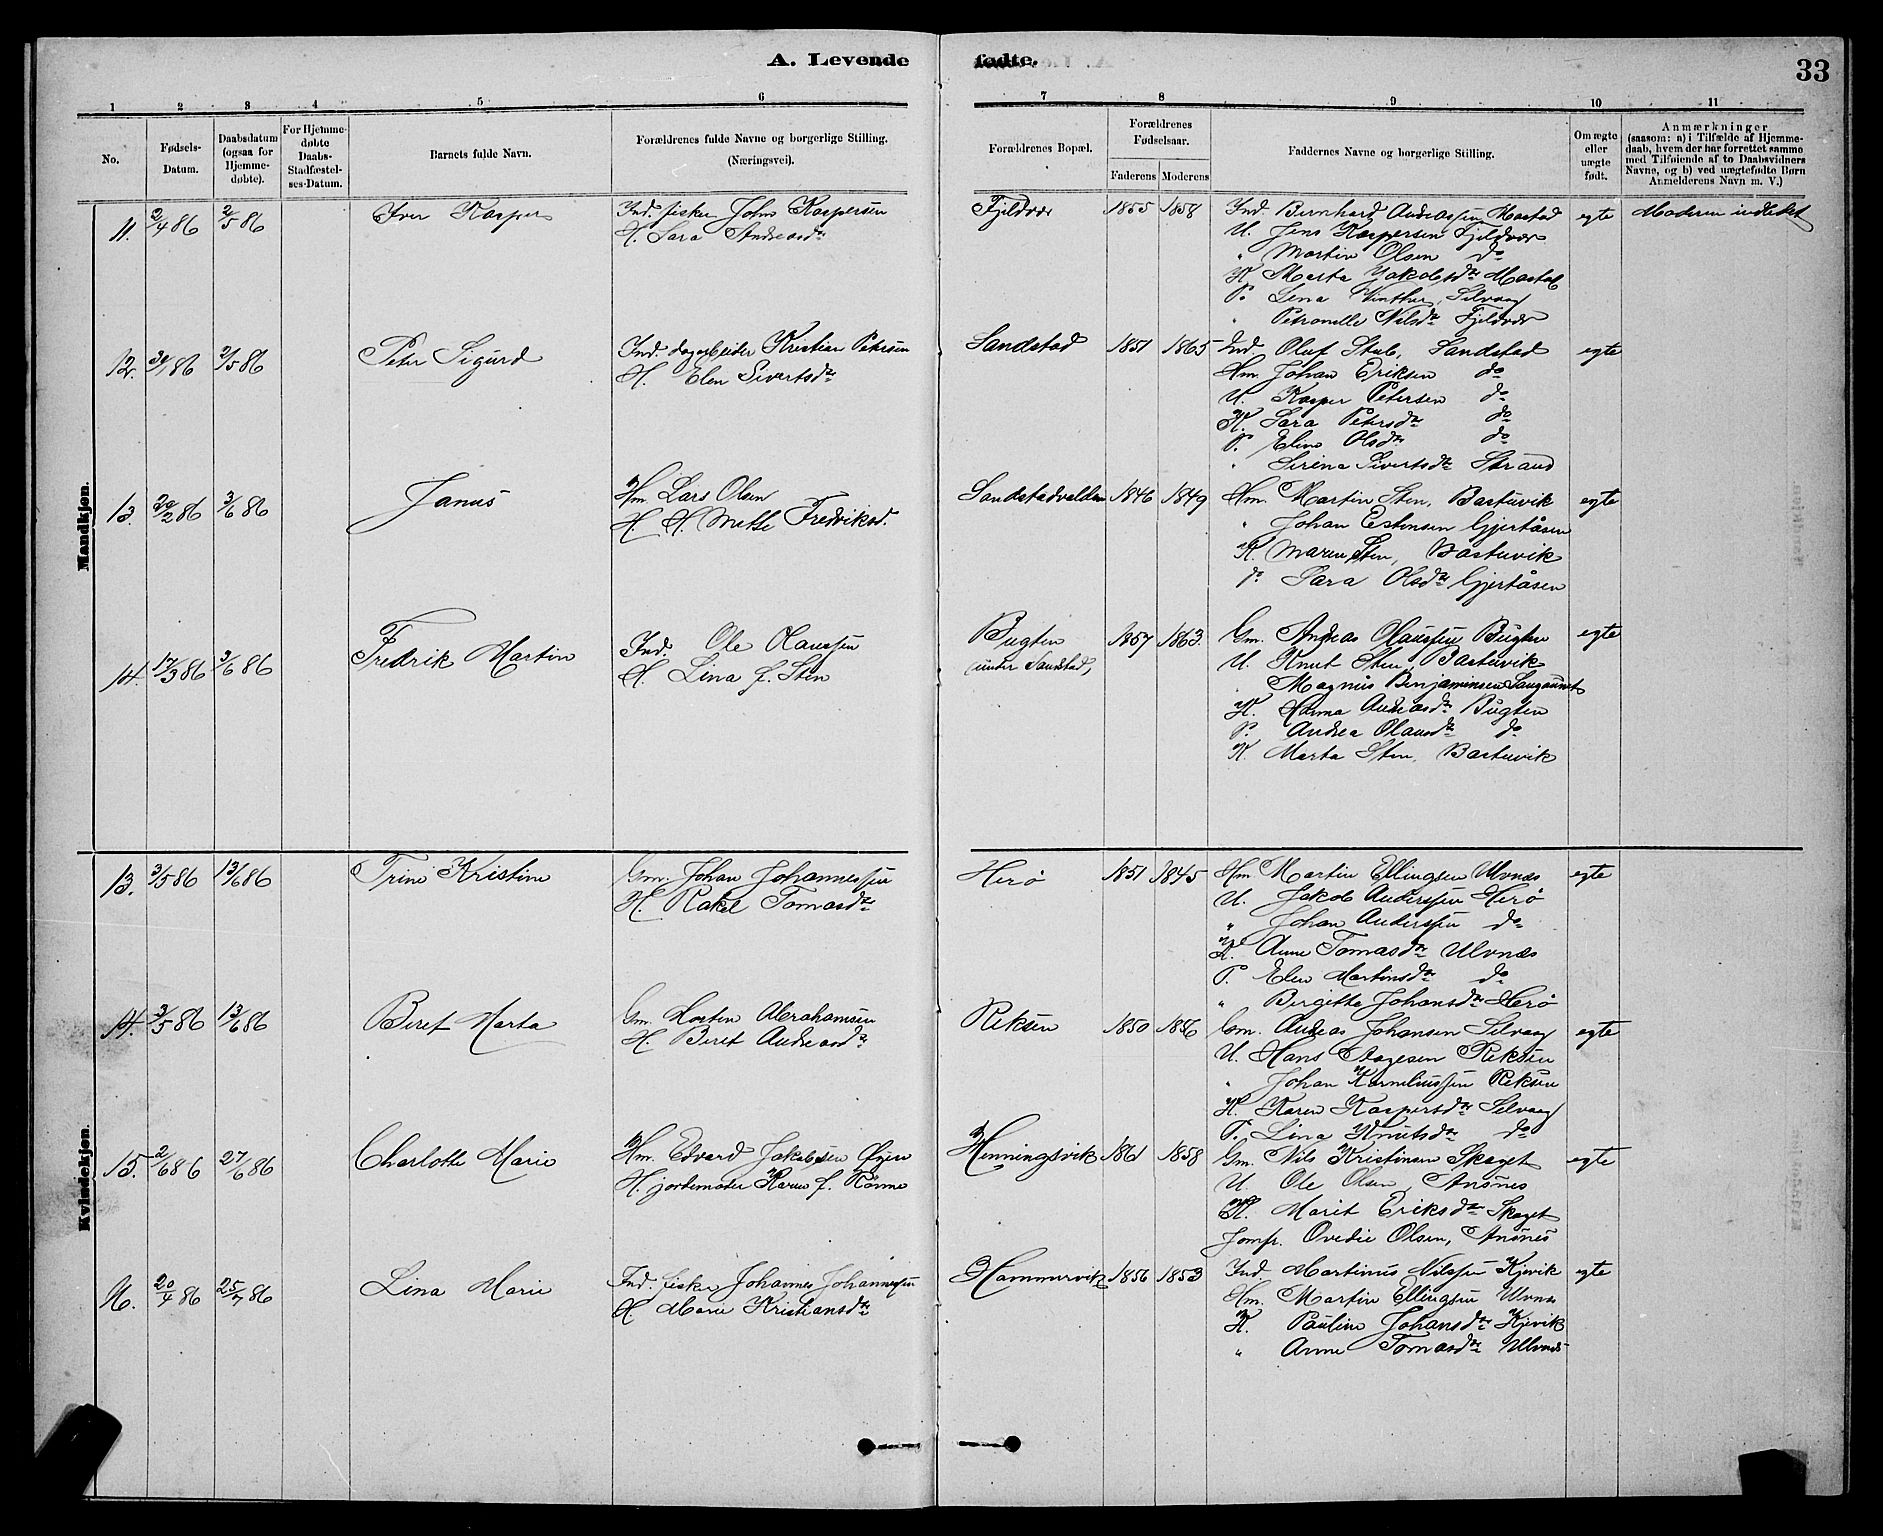 A. Levende fødte.
33
1 2 3 4 5 6 7 8 9 10 11
No.
Fødsels-Datum.
Daabsdatum (ogsaa for Hjemme-døbte).
For Hjemme-døbte Daabs-Stadfæstel-ses-Datum.
Barnets fulde Navn.
Forældrenes fulde Navne og borgerlige Stilling.
(Næringsvei).
Forældrenes Bopæl.
Forældrenes Fødselsaar.
Faderens Moderens
Faddernes Navne og borgerlige Stilling.
Om ægte eller uægte født.
Anmærkninger
(saasom: a) i Tilfælde af Hjemme-
daab, hvem der har forrettet samme
med Tilføiende af to Daabsvidners
Navne, og b) ved uægtefødte Børn
Anmelderens Navn m. V.)
Mandkjøn.
11. 2/4 86 2/5 86 Iver Kasper
Ind. fisker Johs Kaspersen
H. Sara Andreasdr
Fjeldvær 1855 1858
Ind. Bernhard Andreassen Mastad
U. Jens Kaspersen Fjeldvær
" Martin Olsen do
K. Marta Jakobsdr Mastad
P. Lena Winther, Selvaag
" Petronelle Nilsdr Fjeldvær
egte
Moderen indledet
12. 86 2/5 86 Peter Sigurd
Ind. dagarbeider Kristian Petersen
H. Elen Sivertsdr
Sandstad 1851 1865
Ind. Oluf Stub, Sandstad
Hm. Johan Eriksen do
U. Kasper Petersen do
K. Sara Petersdr do
P. Eline Olsdr do
" Serina Sivertsdr Strand
egte
13. 29/2 86 3/6 86 Janus
Hm. Lars Olsen
H. Mette Fredriksd.
Sandstadvalden 1846 1849
Hm. Martin Sten, Bastuvik
" Johan Estensen Gjertåsen
K. Maren Sten, Bastuvik
do Sara Olsdr Gjertåsen
egte
14. 17/3 86 3/6 86 Fredrik Martin
Ind. Ole Olaussen
H. Lina f. Sten
Bugten
under Sandstad,
1857 1863.
Gm. Andreas Olaussen Bugten
U. Knut Sten, Bastuvik
" Magnus Benjaminsen
K. Hanna Andreasdr Bugten
P. Andrea Olausdr do
K. Marta Sten, Bastuvik
egte
Kvindekjøn.
13. 3/5 86 13/6 86 Trine Kristine
Gm. Johan Johannessen
H. Rakel Tomasdr
Herø 1851 1845
Hm Martin Ellingsen Ulvnæs
U. Jakob Anderssen Herø
" Johan Anderssen do
K. Anne Tomasdr Ulvnæs
P. Elen Martinsdr do
" Birgitte Johansdr Herø
egte
14. 3/5 86 13/6 86 Beret Marta
Gm. Morten Abrahamsen
H. Beret Andreasdr
Reksen 1850 1856
Gm. Andreas Johansen Selvaag
U. Hans Aagesen Reksen
" Johan Korneliussen Reksen
K. Karen Kaspersdr Selvaag
P. Lina Knutsdr do
egte
15. 2/6 86 27/6 86 Charlotte Marie
Hm. Edvard Jakobsen Øyen
H. jordemoder Karen f. Rønne
Henningsvik 1861 1858
Gm. Nils Kristensen Skaget
U. Ole Olsen, Ansnes
K. Marit Eriksdr Skaget
Jomfr. Ovedie Olsen, Ansnes
egte
16. 20/4 86 25/7 86 Lina Marie
Ind. fisker Johannes Johannessen
H Marie Kristiansdr
Hammervik 1856 1853
Ind. Martinus Nilssen Kjevik
Hm. Martin Ellingsen Ulvnæs
K. Pauline Johansdr Kjevik
" Anne Tomasdr Ulvnæs
egte